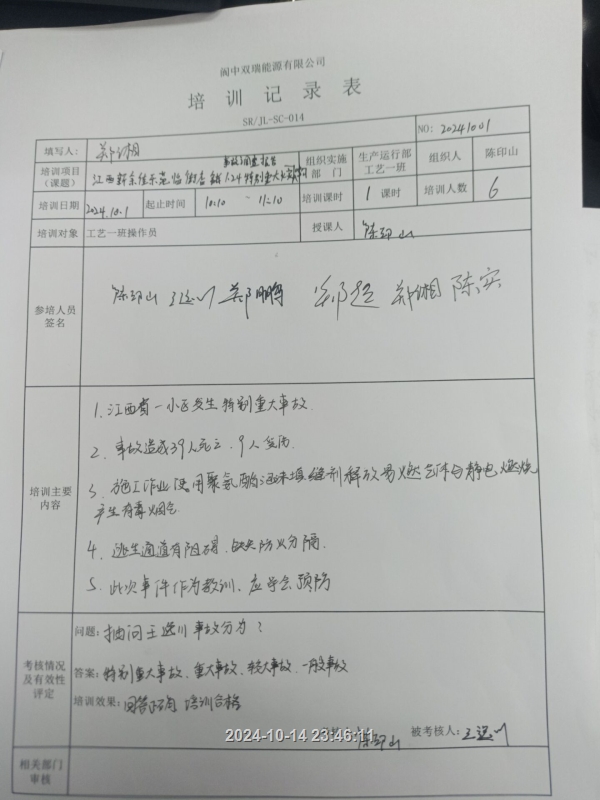 阆中双瑞能源有限公司
培训记录表
SR/JL-SC-014
NO: 20241001
填写人: 郑湘
培训项目（课题） 江西新余佳乐苑临街店铺1.24特别重大火灾事故调查报告 组织实施部门 生产运行部工艺一班 组织人 陈印山
培训日期 2024.10.1 起止时间 10:10 ~ 11:10 培训课时 1 课时 培训人数 6
培训对象 工艺一班操作员 授课人 陈印山
参培人员签名 陈印山 王远川 郑鹏 郑超 郑湘 陈实
培训主要内容
1. 江西省一小区发生特别重大事故
2. 事故造成39人死亡, 9人受伤.
3. 施工作业使用聚氨酯泡沫填缝剂释放易燃气体与静电燃烧
产生有毒烟气
4. 逃生通道有阻碍, 缺失防火分隔.
5. 此次事件作为教训, 应学会预防
考核情况及有效性评定
问题: 抽问王远川事故分为?
答案: 特别重大事故、重大事故、较大事故、一般事故
培训效果: 回答正确 培训合格
陈印山 被考核人: 王远川
2024-10-14 23:46:11
相关部门审核